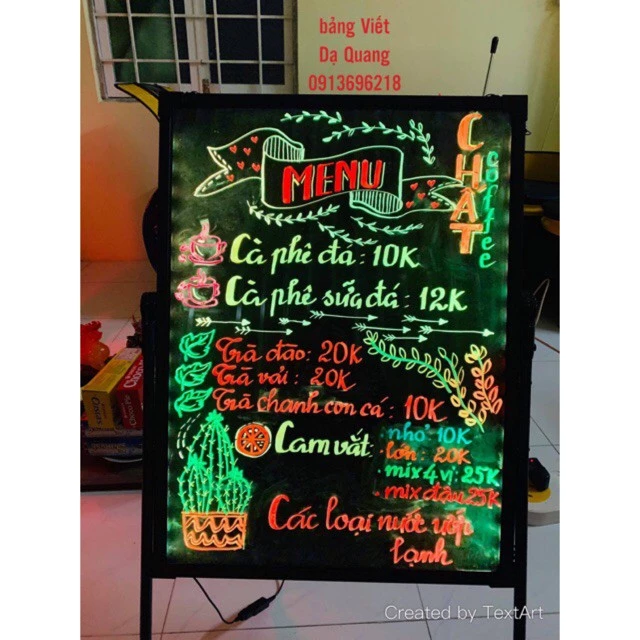 bảng Viết
Dạ Quang
0913696218
MENU
CHẤT
coffee
Cà phê đá: 10K
Cà phê sữa đá: 12K
Trà đào: 20K
Trà vải: 20K
Trà chanh con cá: 10K
Cam vắt:
nhỏ 10K
lớn: 20K
mix 4 vị: 25K
mix dâu 25K
Các loại nước uống
lạnh
Created by TextArt